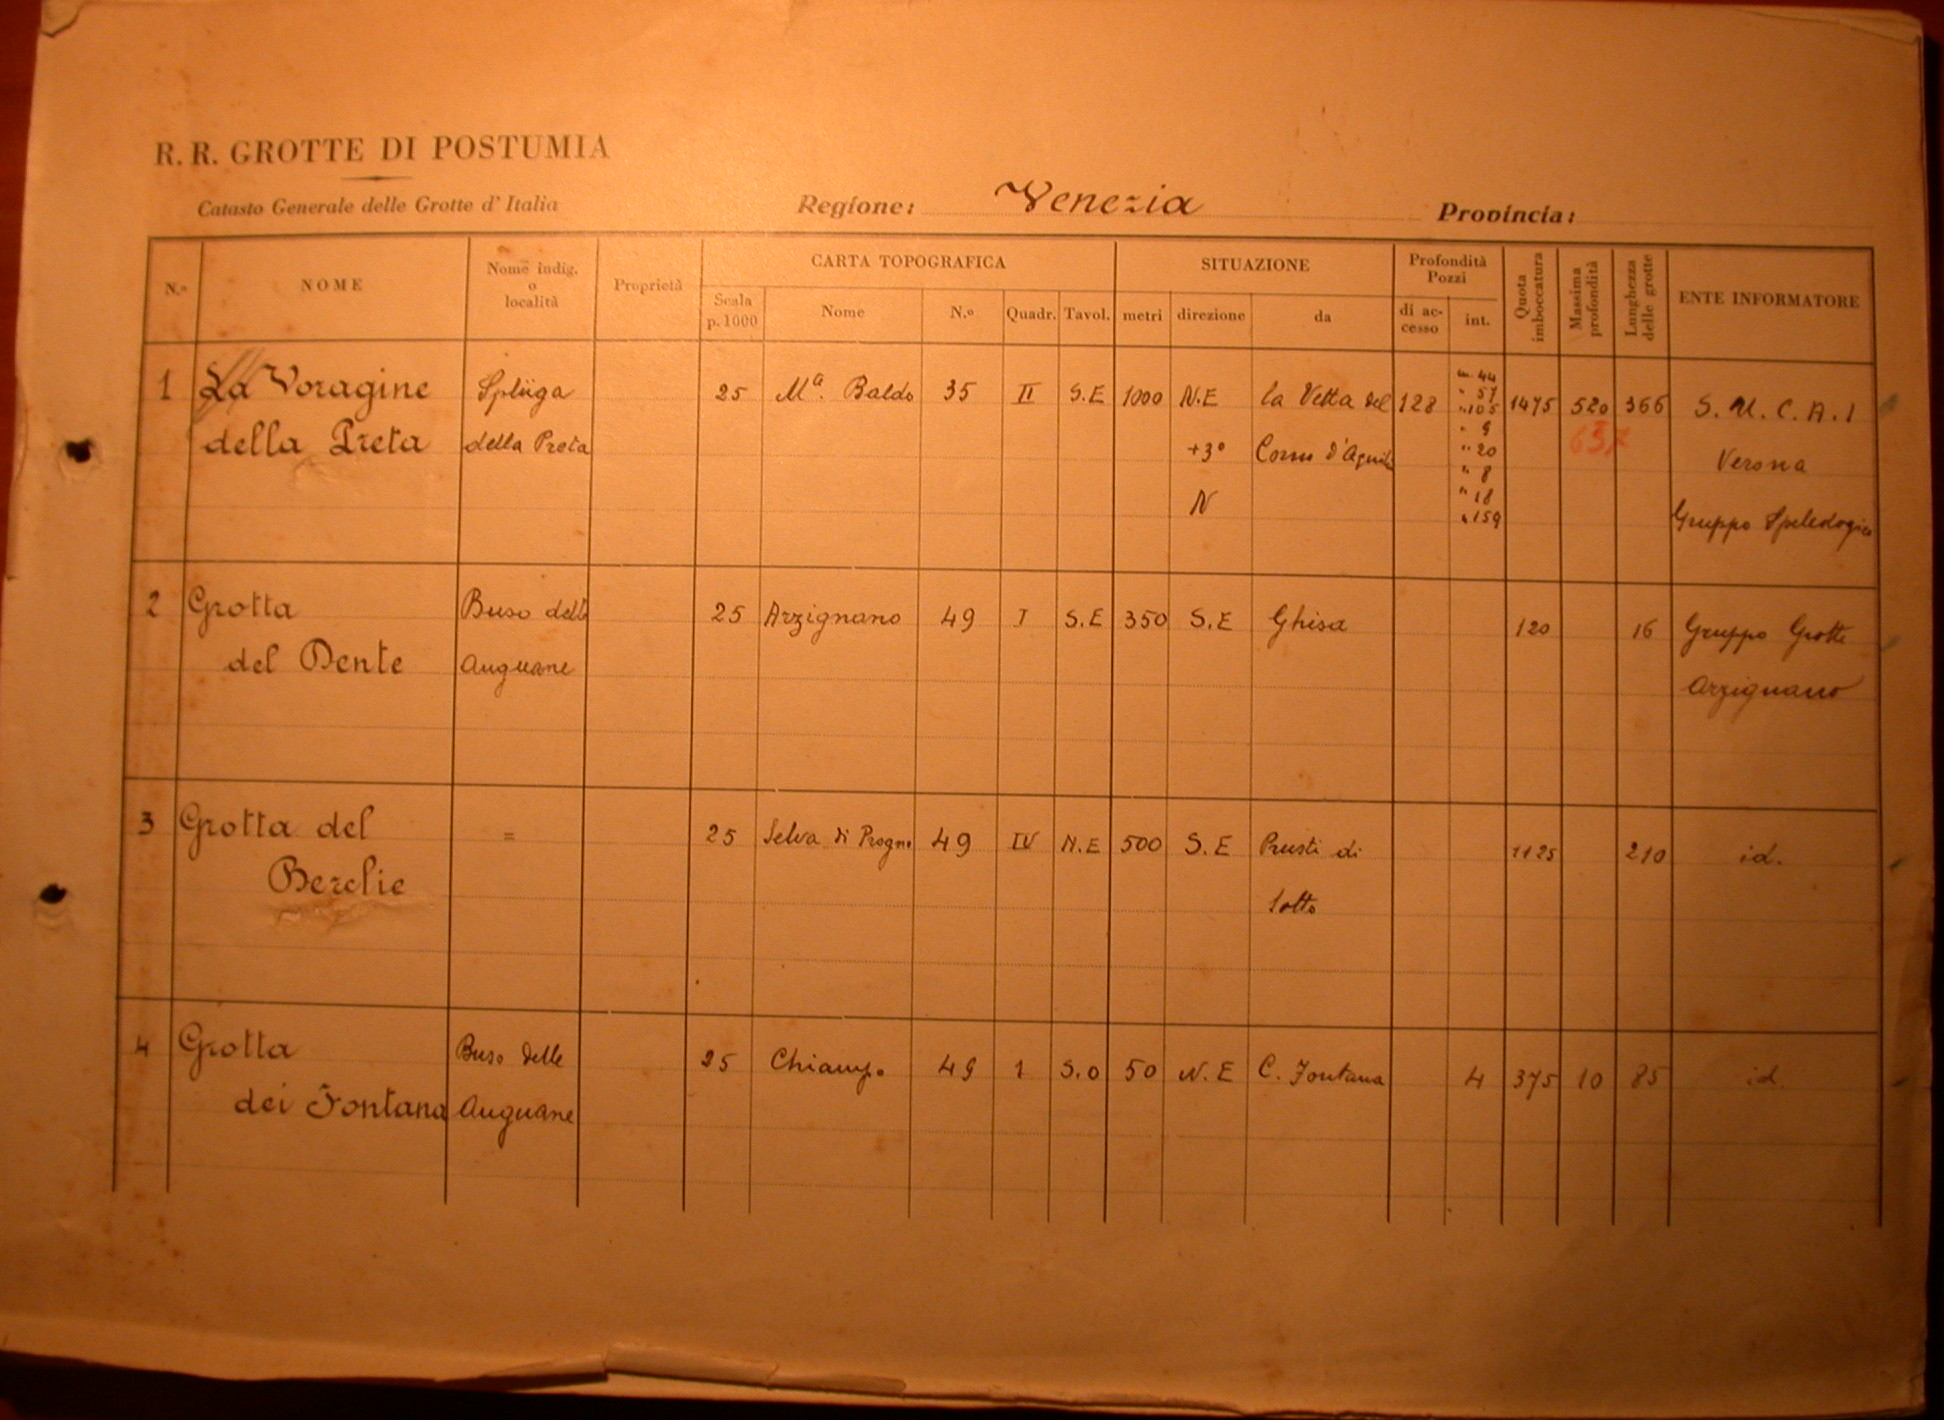 R. R. GROTTE DI POSTUMIA
Catasto Generale delle Grotte d'Italia
Regione: Venezia
Provincia:
N.º
NOME
Nome indig.
o
località
Proprietà
CARTA TOPOGRAFICA
Scala
p. 1000
Nome
N.º
Quadr.
Tavol.
SITUAZIONE
metri
direzione
da
Profondità
Pozzi
di ac-
cesso
int.
Quota
imboccatura
Massima
profondità
Lunghezza
delle grotte
ENTE INFORMATORE
1
La Voragine
della Preta
Splüga
della Preta
25
Mª. Baldo
35
II
S.E
1000
N.E
+3º
N
la Vetta del
Corno d'Aquila
128
m. 44
" 57
" 105
" 9
" 20
" 8
" 18
" 159
1475
520
637
366
S. U. C. A. I
Verona
Gruppo Speleologico
2
Grotta
del Dente
Buso delle
Anguane
25
Arzignano
49
I
S.E
350
S.E
Ghisa
120
16
Gruppo Grotte
Arzignano
3
Grotta del
Berclie
=
25
Selva di Progno
49
IV
N.E
500
S.E
di
Sotto
1125
210
id.
4
Grotta
dei Fontana
Buso delle
Anguane
25
Chiampo
49
1
S.O
50
N.E
C. Fontana
4
375
10
85
id